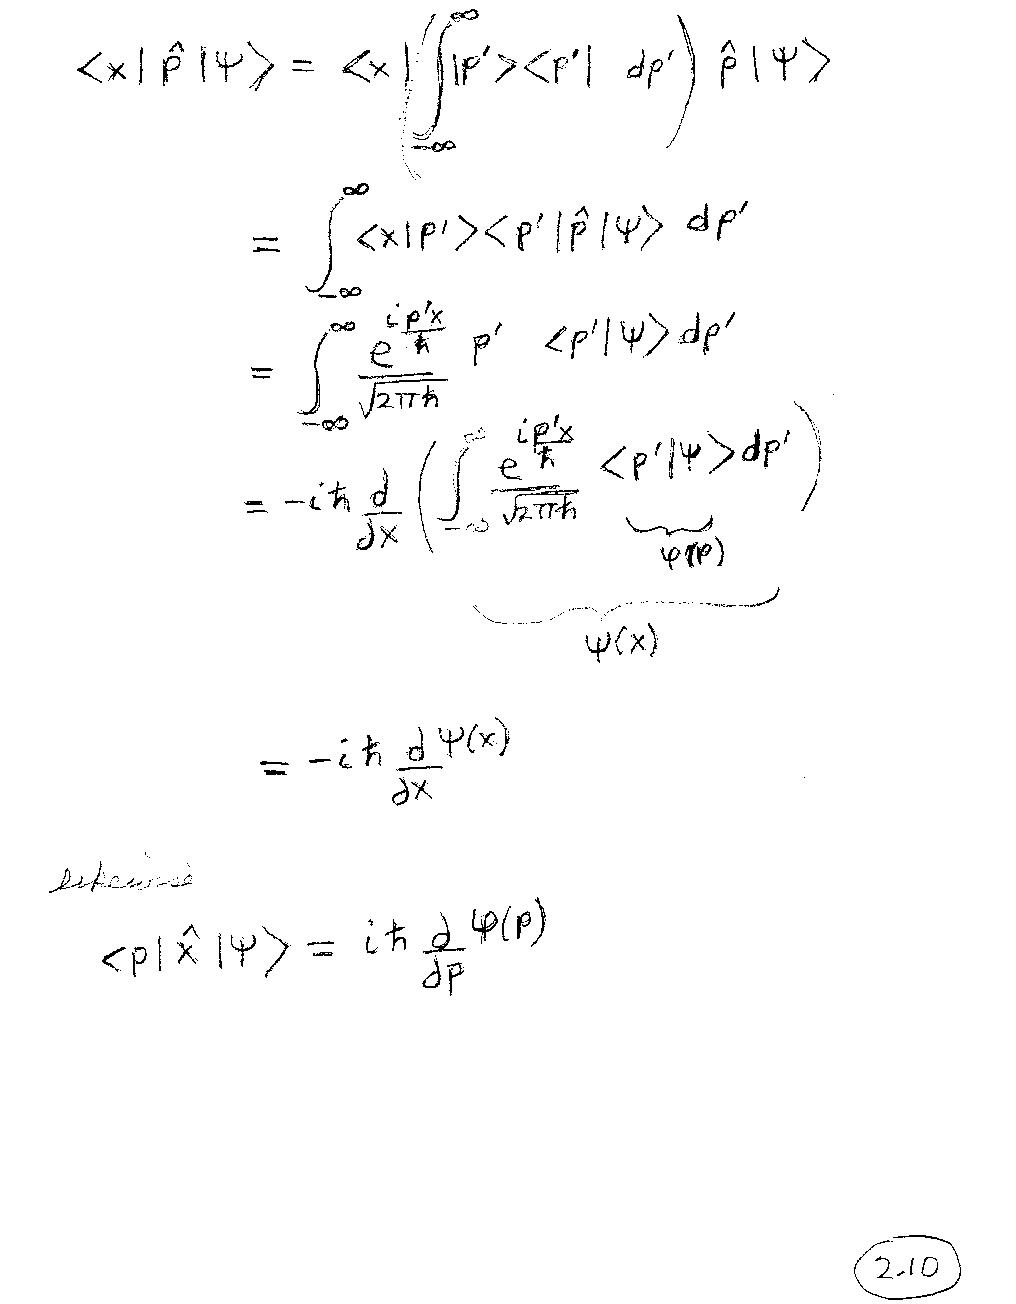 <x| p̂ |ψ> = <x| ( ∫_{-∞}^{∞} |p'><p'| dp' ) p̂ |ψ>
= ∫_{-∞}^{∞} <x|p'><p'|p̂|ψ> dp'
= ∫_{-∞}^{∞} \frac{e^{i\frac{p'x}{ħ}}}{\sqrt{2πħ}} p' <p'|ψ> dp'
= -iħ \frac{d}{dx} ( ∫_{-∞}^{∞} \frac{e^{i\frac{p'x}{ħ}}}{\sqrt{2πħ}} <p'|ψ> dp' )
φ(p)
ψ(x)
= -iħ \frac{d}{dx} ψ(x)
likewise
<p| x̂ |ψ> = iħ \frac{d}{dp} φ(p)
2.10